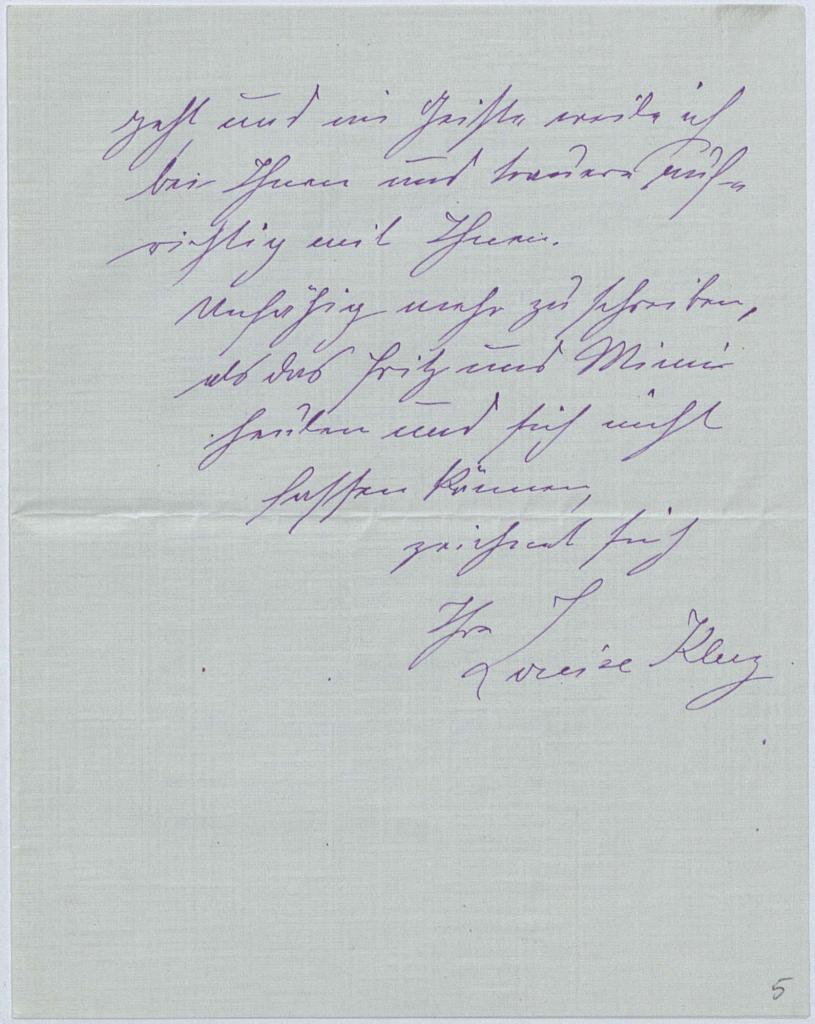 geht und im Geiste weile ich
bei Ihnen und trauere auf-
richtig mit Ihnen.
Unfähig mehr zu schreiben,
als das Fritz und Mimi
heulen und sich nicht
fassen können,
zeichnet sich
Ihre
Louise Klug
5